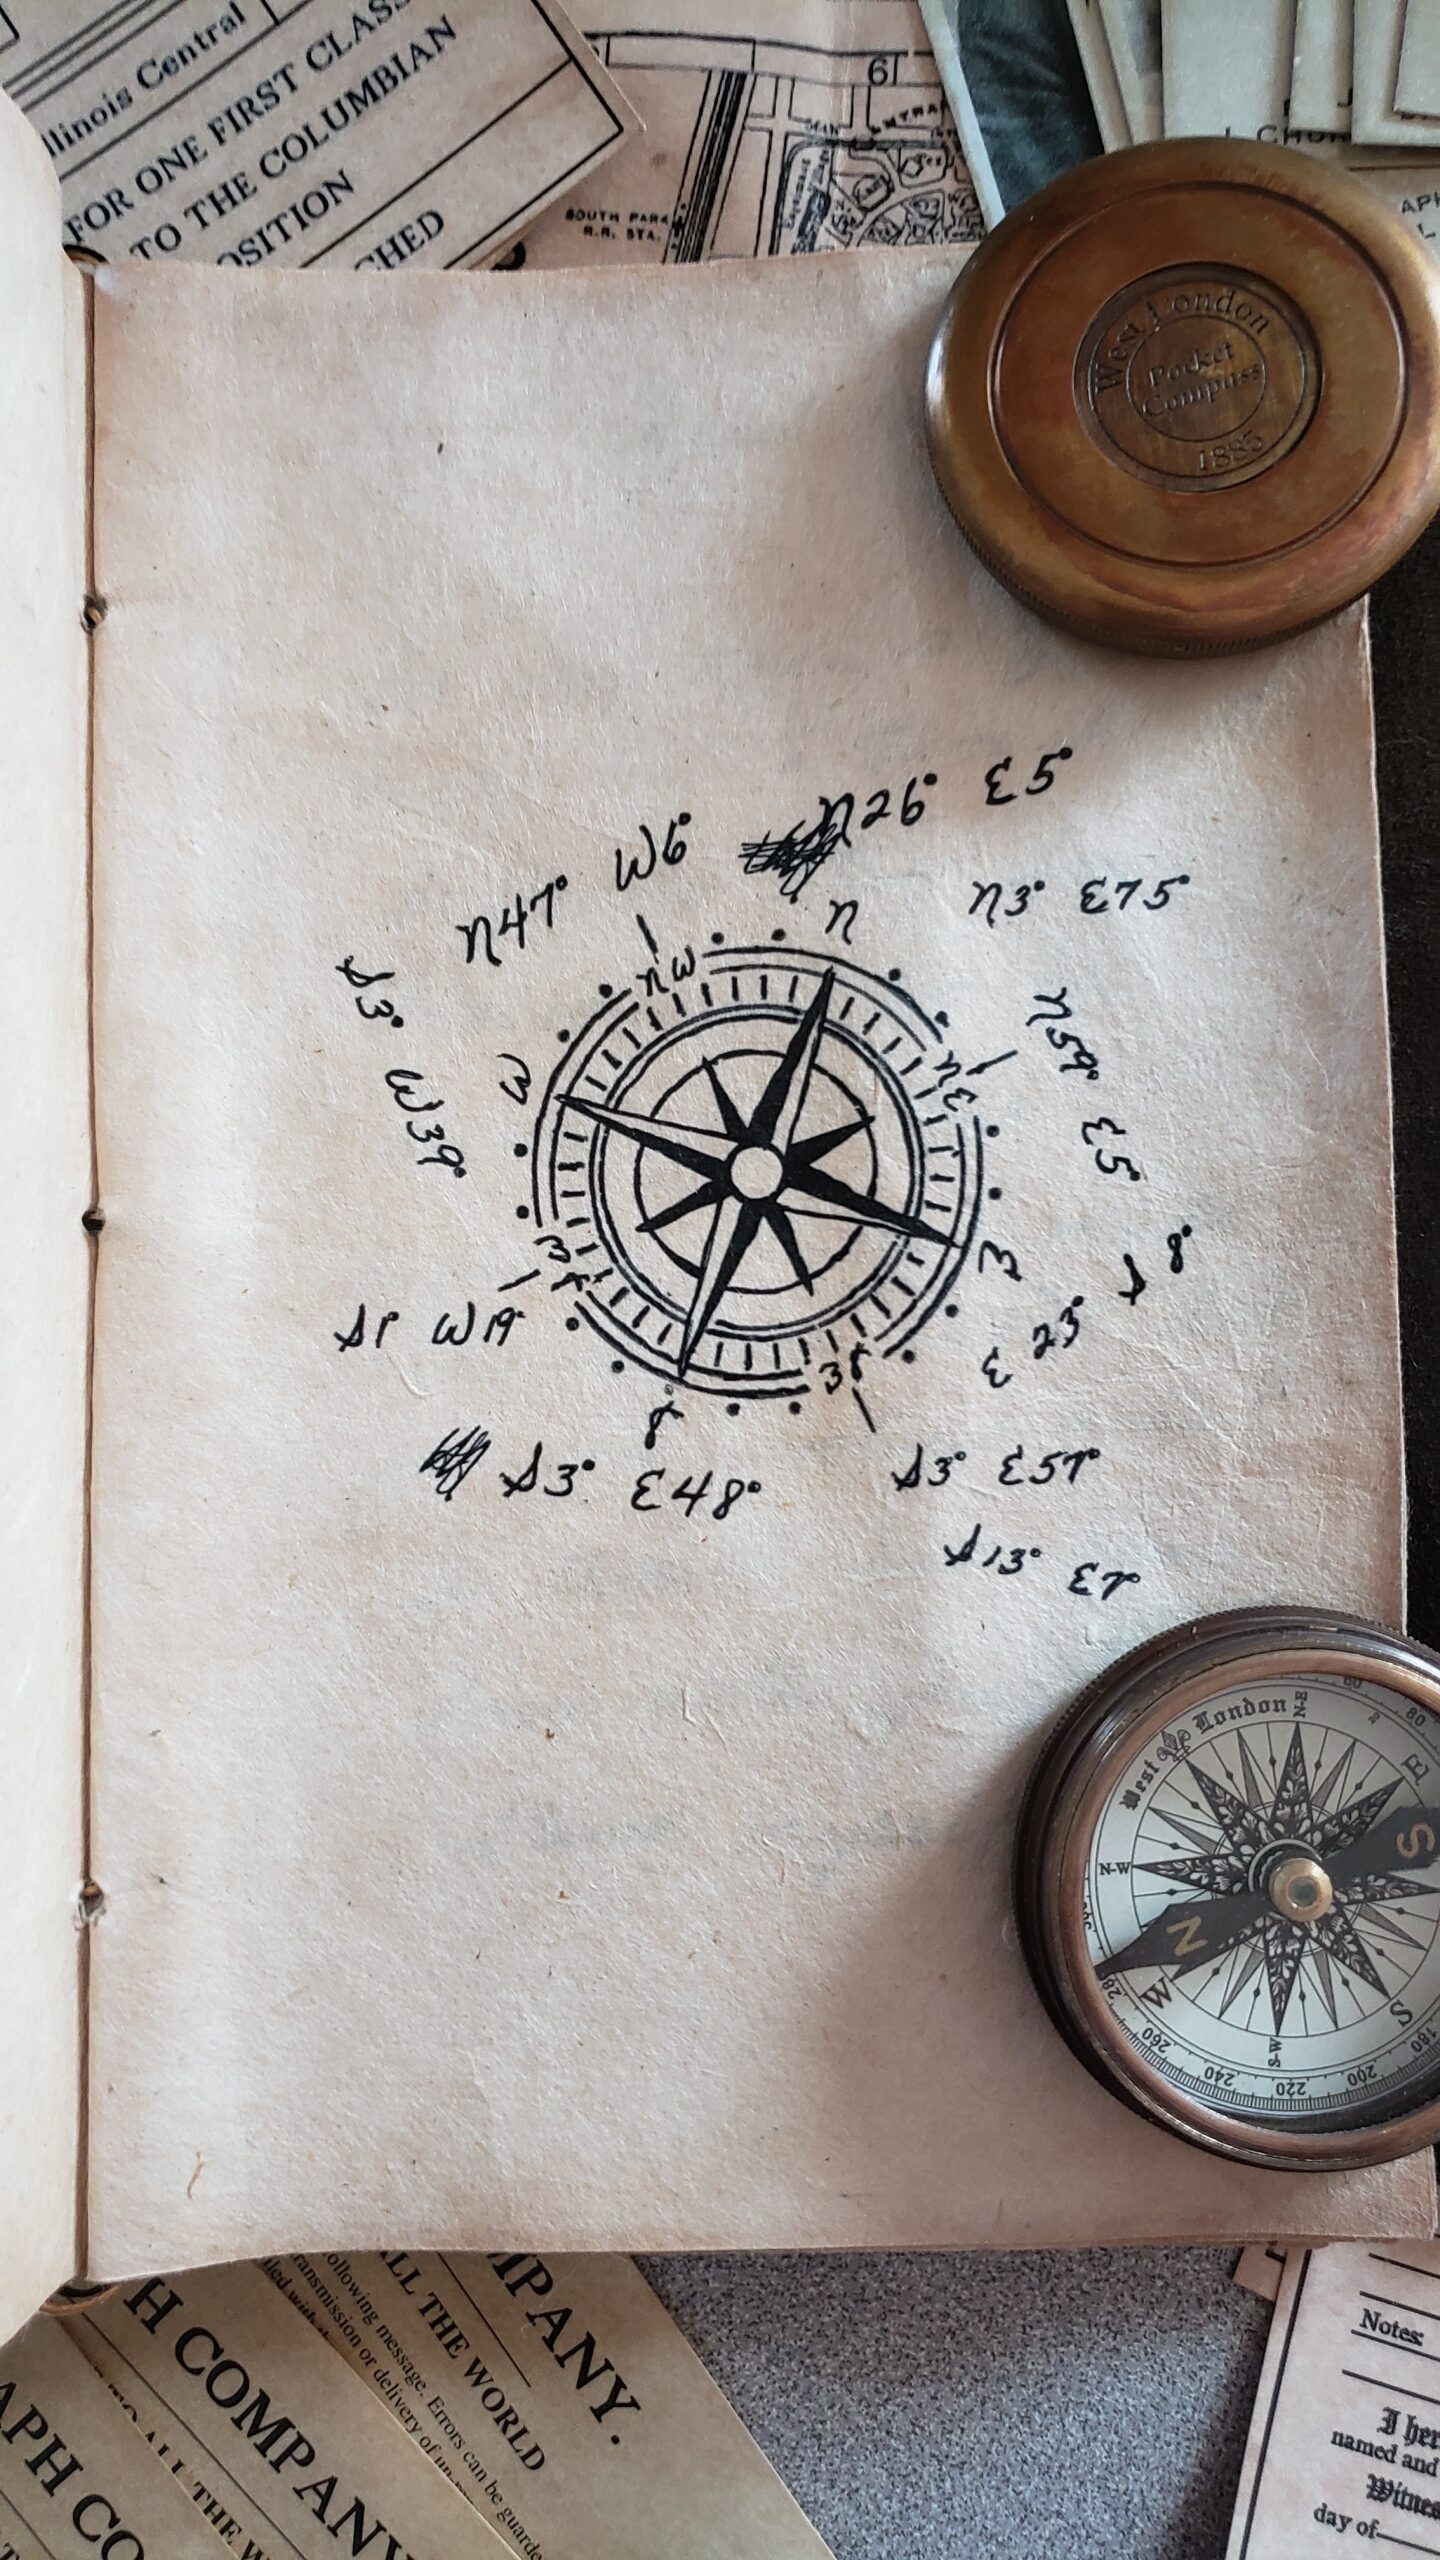 Illinois Central
FOR ONE FIRST CLASS
TO THE COLUMBIAN
OSITION
CHED
61
SOUTH PARK
R.R. STA.
West London
Pocket
Compass
1885
N26° E5°
N47° W6°
N3° E75°
S3° W39°
N59° E5°
N
NW
NE
W
E
SW
SE
S
S 8°
E 23°
S1° W19°
S3° E48°
S3° E57°
S13° E2°
West London
N-E
60
80
E
N-W
S
N
W
S
S-W
260
240
220
200
180
MPANY.
ALL THE WORLD
following message. Errors can be guarde
transmission or delivery of un
H COMPANY
TO ALL THE W
APH CO
Notes:
I her
named and
Witnes
day of